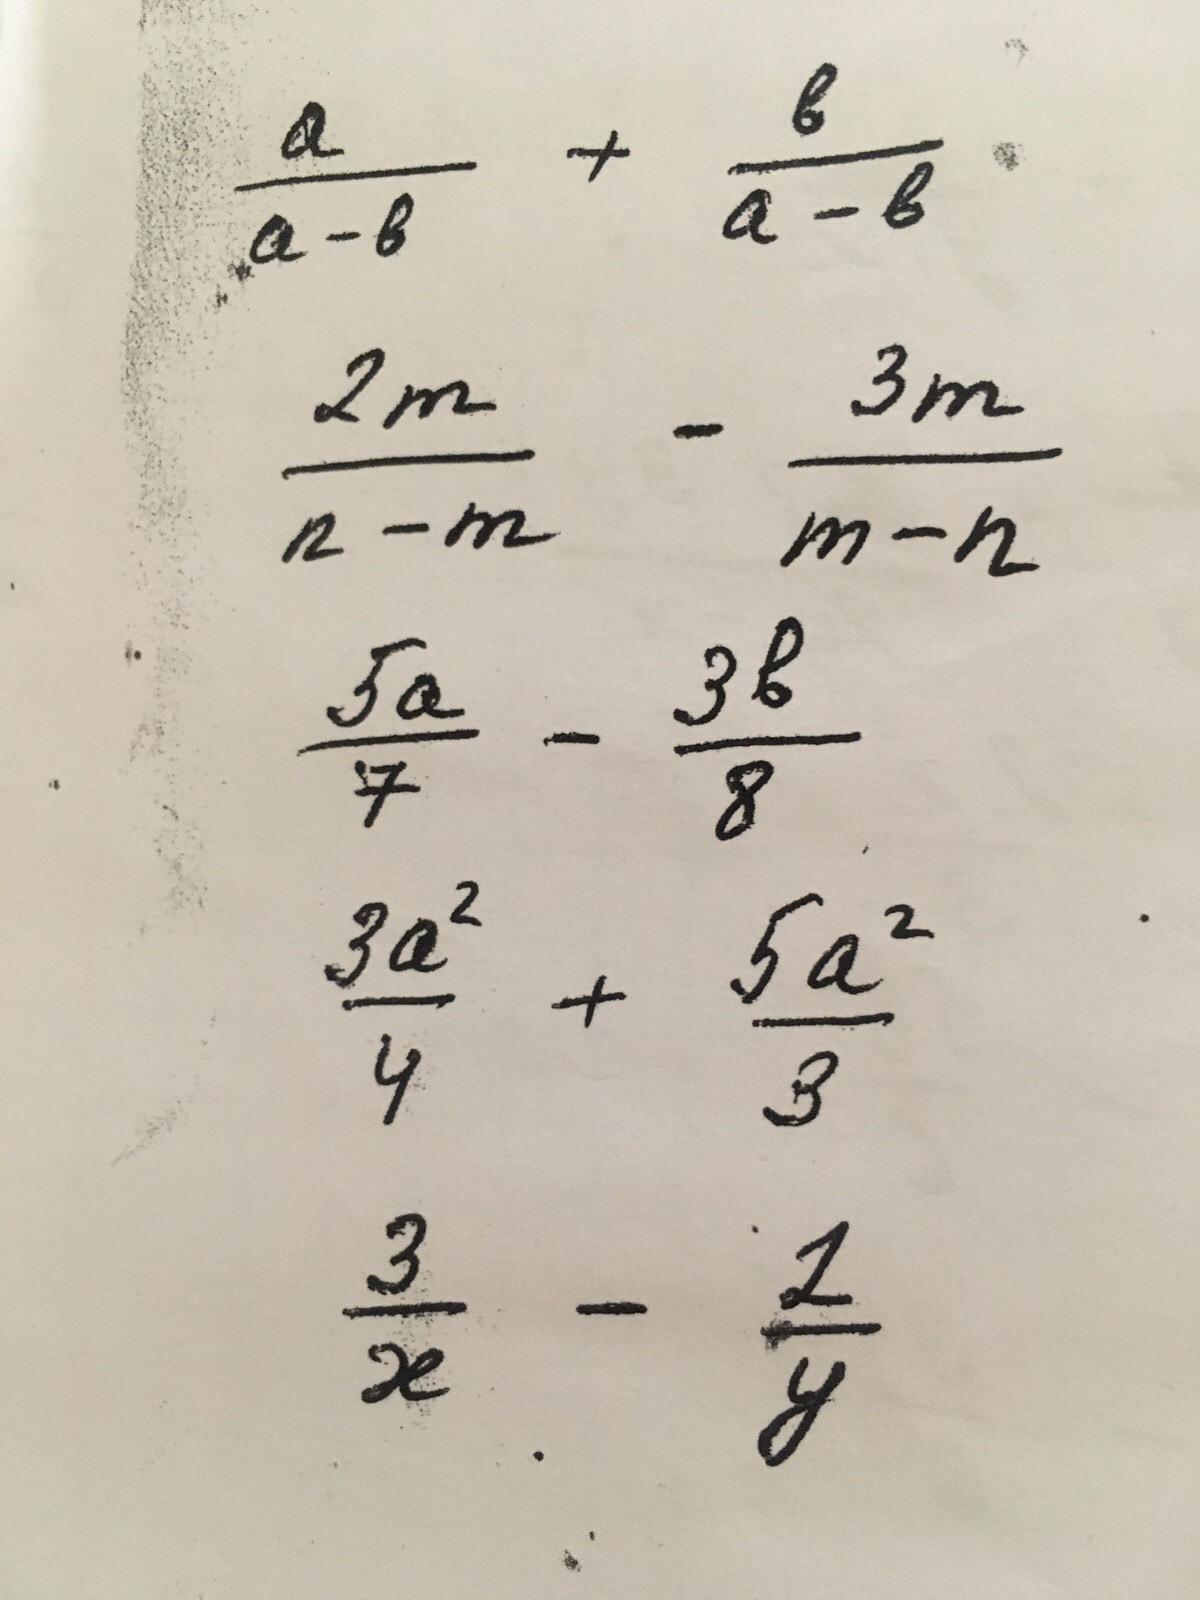 a/(a-b) + b/(a-b)
2m/(n-m) - 3m/(m-n)
5a/7 - 3b/8
3a²/4 + 5a²/3
3/x - 2/y